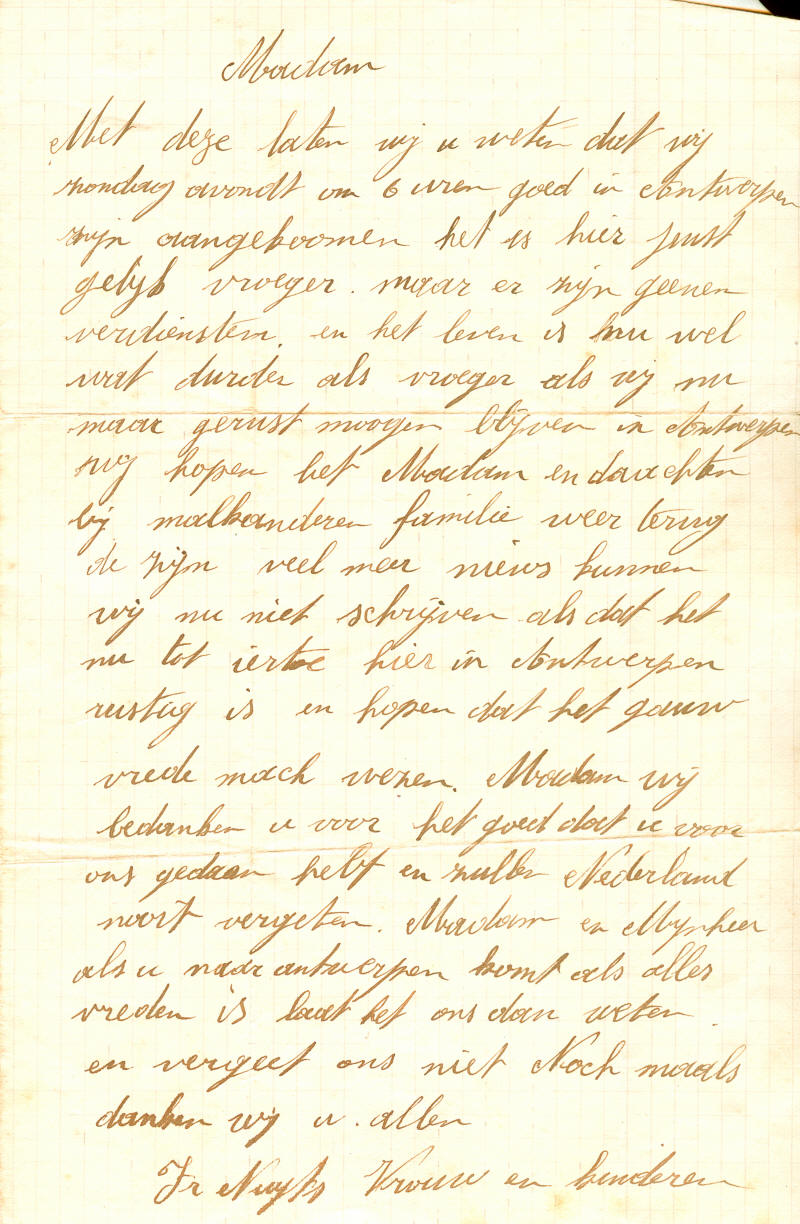 Madam
Met deze laten wij u weten dat wij
zondag avondt om 6 uren goed in Antwerpen
zijn aangekoomen het is hier just
gelijk vroeger. maar er zijn geenen
verdiensten. en het leven is nu wel
wat durder als vroeger als wij nu
maar gerust moogen blijven in Antwerpen
wij hopen het Madam en dauchten
bij malkanderen familie weer terug
de zijn veel meer nieuws kunnen
wij nu niet schrijven als dat het
nu tot ierte hier in Antwerpen
rustag is en hopen dat het gauw
vrede mach wezen. Madam wij
bedanken u voor het goed dat u voor
ons gedaan helf en zullen Nederland
noort vergeten. Madam en Mijnheer
als u naar antwerpen komt als alles
vreden is laat het ons dan weten
en vergeet ons niet Noch maals
danken wij u. allen
Fr Nuyts Vrouw en kinderen